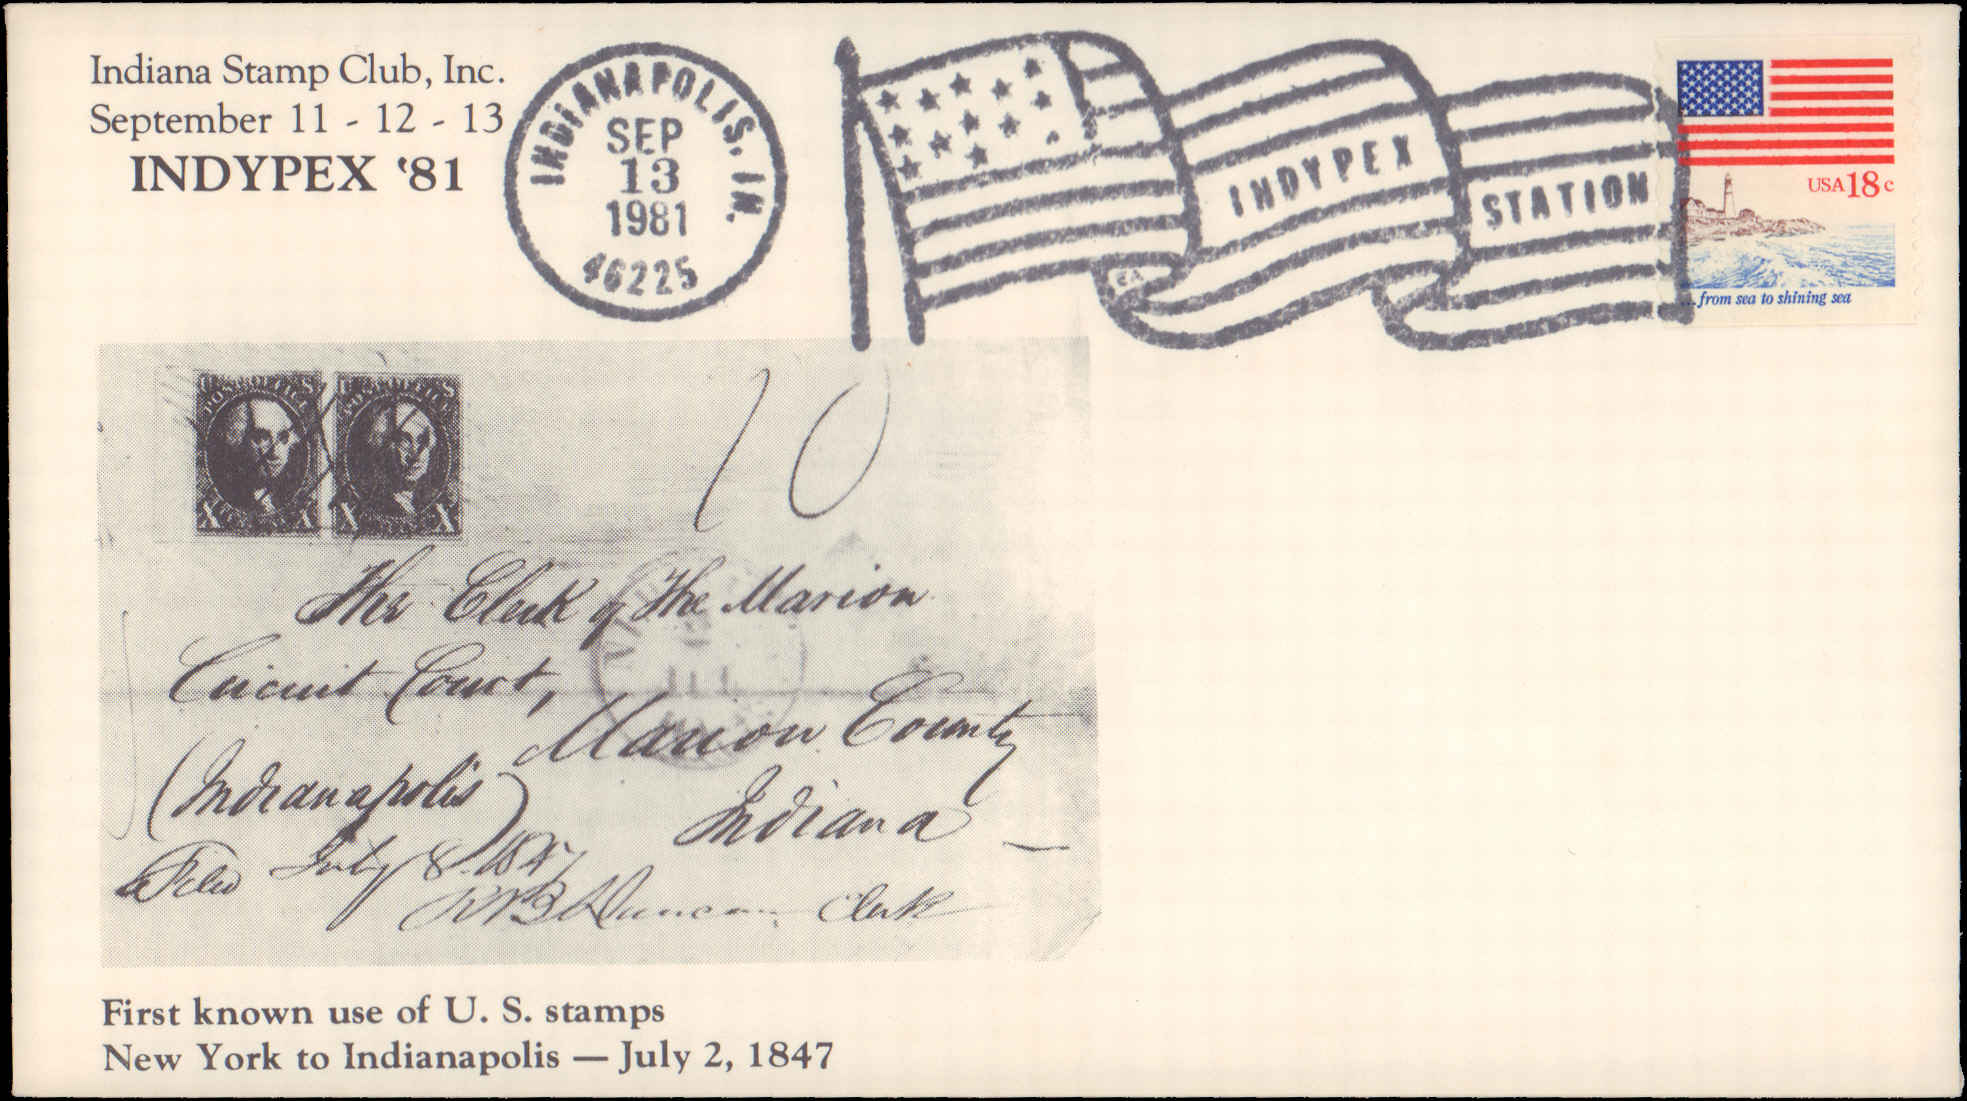 Indiana Stamp Club, Inc.
September 11 - 12 - 13
INDYPEX '81
INDIANAPOLIS, IN.
SEP
13
1981
46225
INDYPEX
STATION
USA 18c
...from sea to shining sea
POST OFFICE
X X
POST OFFICE
X X
10
The Clerk of The Marion
Circuit Court,
Marion County
(Indianapolis)
Indiana
Filed July 8. 1847
Duncan Clerk
First known use of U. S. stamps
New York to Indianapolis — July 2, 1847